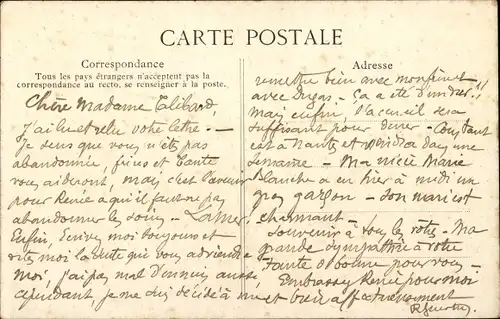 CARTE POSTALE
Correspondance
Tous les pays étrangers n'acceptent pas la
correspondance au recto, se renseigner à la poste.
Chère Madame
J'ai lu et relu votre lettre. —
Je sens que vous n'êtes pas
abandonnée, frères et tante
vous aideront, mais c'est l'avenir
pour Renée à qui il faut ne pas
abandonner les soins —
Enfin, Ecrivez moi toujours et
dites moi la suite que vous
moi, j'ai pas mal d'ennuis aussi,
cependant, je me suis décidé à me
Adresse
remettre bien avec mon
avec — Ca a été dur!!
Mais enfin, l'accueil sera
suffisant pour durer — Constant
est à Nantes et viendra dans une
semaine — Ma nièce Marie
Blanche a eu hier à midi un
gros garçon — Son mari est
charmant —
Souvenir à tous les vôtres — Ma
grande sympathie à votre
tante si bonne pour vous —
Embrassez Renée pour moi
et bien affectueusement